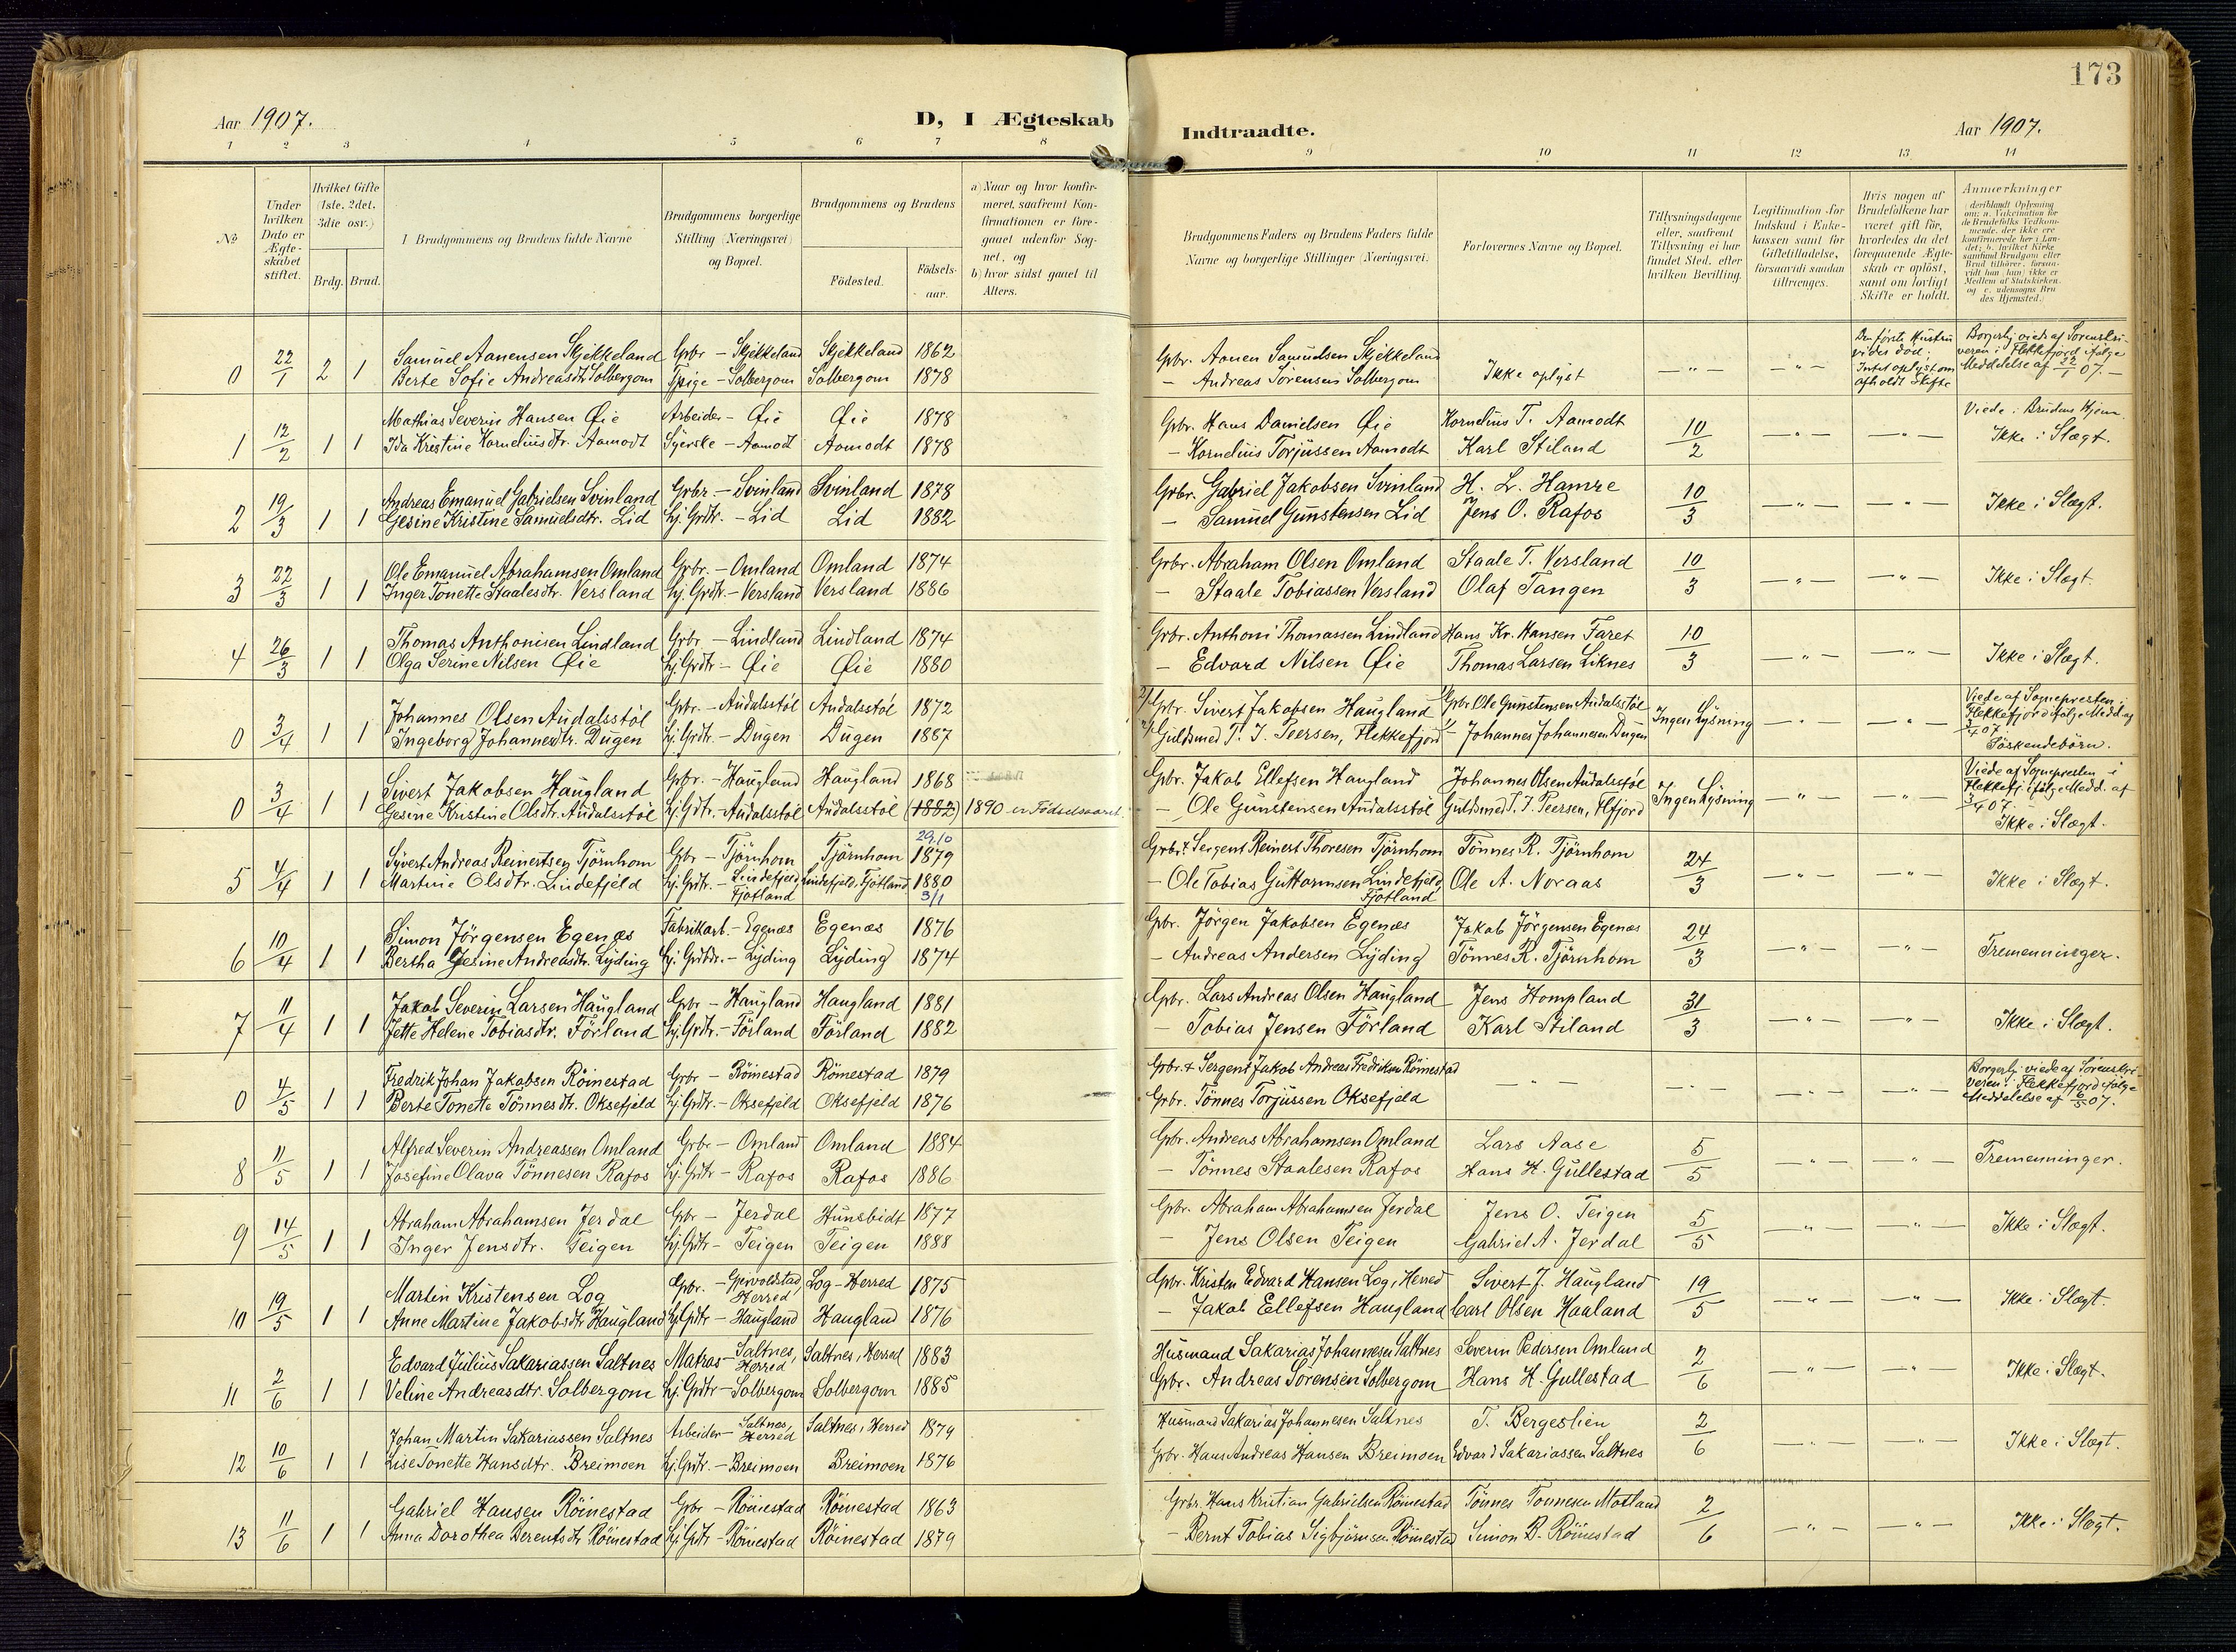 173
Aar 1907.
D, I Ægteskab Indtraadte.
Aar 1907.
1 2 3 4 5 6 7 8 9 10 11 12 13 14
№
Under hvilken Dato er Ægteskabet stiftet.
Hvilket Gifte (1ste, 2det, 3die osv.)
Brdg. Brud.
I Brudgommens og Brudens fulde Navne
Brudgommens borgerlige Stilling (Næringsvei) og Bopæl.
Brudgommens og Brudens
Födested.
Födsels-aar.
a) Naar og hvor konfirmeret, saafremt Konfirmationen er foregaaet udenfor Sognet, og
b) hvor sidst gaaet til Alters.
Brudgommens Faders og Brudens Faders fulde Navne og borgerlige Stillinger (Næringsvei.
Forlovernes Navne og Bopæl.
Tillysningsdagene eller, saafremt Tillysning ei har fundet Sted, efter hvilken Bevilling.
Legitimation for Indskud i Enkekassen samt for Giftetilladelse, forsaavidt saadan tiltrænges.
Hvis nogen af Brudefolkene har været gift för, hvorledes da det foregaaende Ægteskab er oplöst, samt om lovligt Skifte er holdt.
Anmærkninger (deriblandt Oplysning om: a. Vakcination for de Brudefolks Vedkommende, der ikke ere konfirmerede her i Landet; b. hvilket Kirkesamfund Brudgom eller Brud tilhörer, forsaavidt han (hun) ikke er Medlem af Statskirken, og c. udensogns Brudes Hjemsted.)
0 22/1 2 1 Samuel Aanensen Skjekkeland Gbr - Skjekkeland Skjekkeland 1862 Gbr. Aanen Samuelsen Skjekkeland
Berte Sofie Andreasdtr Solbergom Tjpige - Solbergom Solbergom 1878 - Andreas Sörensen Solbergom Ikke oplyst — " — — " — Den förste Hustru vides död; Intet oplyst om afholdt Skifte Borgerlig viede af Sorenskriveren i Flekkefjord ifölge Meddelelse af 22/1 07. -
1 12/2 1 1 Mathias Severin Hansen Øie Arbeider - Øie Øie 1878 Gbr. Hans Danielsen Øie Kornelius T. Aamodt 10/2 — " — — " — Viede i Brudens Hjem
Ida Kristine Korneliusdtr. Aamodt Syerske - Aamodt Aamodt 1878 - Kornelius Torjussen Aamodt Karl Stiland Ikke i Slægt.
2 19/3 1 1 Andreas Emanuel Gabrielsen Svinland Grbr. - Svinland Svinland 1878 Grbr. Gabriel Jakobsen Svinland H. L. Hamre 10/3 — " — — " — Ikke i Slægt.
Gesine Kristine Samuelsdtr. Lid hj. Grdtr. - Lid Lid 1882 - Samuel Gunstensen Lid Jens O. Rafos
3 22/3 1 1 Ole Emanuel Abrahamsen Omland Grbr. - Omland Omland 1874 Grbr. Abraham Olsen Omland Staale T. Versland 10/3 — " — — " — Ikke i Slægt.
Inger Tonette Staalesdtr. Versland hj. Grdtr. - Versland Versland 1886 - Staale Tobiassen Versland Olaf Tangen
4 26/3 1 1 Thomas Anthonisen Lindland Grbr - Lindland Lindland 1874 Grbr. Anthoni Thomassen Lindland Hans Kr. Hansen Faret 10/3 — " — — " — Ikke i Slægt.
Olga Serine Nilsen Øie hj. Grdtr - Øie Øie 1880 - Edvard Nilsen Øie Thomas Larsen Liknes
0 3/4 1 1 Johannes Olsen Audalsstöl Gbr. - Audalsstöl Audalsstöl 1872 Gbr. Sivert Jakobsen Haugland Gbr. Ole Gunstensen Audalsstöl Ingen Lysning — " — — " — Viede af Sognepresten i Flekkefjord ifölge Medd. af 3/4 07.
Ingeborg Johannesdtr. Dugen hj. Grdtr. - Dugen Dugen 1887 Guldsmed T. J. Peersen, Flekkefjord - Johannes Johannesen Dugen Söskendebörn.
0 3/4 1 1 Sivert Jakobsen Haugland Gbr. - Haugland Haugland 1868 Gbr. Jakob Ellefsen Haugland Johannes Olsen Audalsstöl Ingen Lysning — " — — " — Viede af Sognepresten i Flekkefj. ifölge Medd. af 3/4 07.
Gesine Kristine Olsdtr. Audalsstöl hj. Grdtr. - Audalsstöl Audalsstöl (1882) 1890 er Födselsaaret. - Ole Gunstensen Audalsstöl Guldsmed T. J. Peersen, Flfjord Ikke i Slægt.
5 4/4 1 1 Syvert Andreas Reinertsen Tjörnhom Gbr - Tjörnhom Tjörnhom 29/10 1879 Grbr. & Sergent Reinert Thoresen Tjörnhom Tönnes R. Tjörnhom 24/3 — " — — " — Ikke i Slægt.
Martine Olsdtr. Lindefjeld hj. Grdtr. - Lindefjeld, Fjotland Lindefjeld, Fjotland 1880 3/1 - Ole Tobias Guttormsen Lindefjeld, Fjotland Ole A. Noraas
6 10/4 1 1 Simon Jörgensen Egenæs Fabrikarb. - Egenæs Egenæs 1876 Gbr. Jörgen Jakobsen Egenæs Jakob Jörgensen Egenæs 24/3 — " — — " — Tremenninger.
Bertha Gesine Andreasdtr. Lyding hj. Grdtr. - Lyding Lyding 1874 - Andreas Andersen Lyding Tönnes R. Tjörnhom
7 11/4 1 1 Jakob Severin Larsen Haugland Gbr - Haugland Haugland 1881 Gbr. Lars Andreas Olsen Haugland Jens Hompland 31/3 — " — — " — Ikke i Slægt.
Jette Helene Tobiasdtr. Förland hj. Grdtr. - Förland Förland 1882 - Tobias Jensen Förland Karl Stiland
0 4/5 1 1 Fredrik Johan Jakobsen Röinestad Grbr - Röinestad Röinestad 1879 Grbr. & Sergent Jakob Andreas Fredriksen Röinestad — " — — " — — " — — " — Borgerlig viede af Sorenskriveren i Flekkefjord ifölge Meddelelse af 6/5 07.
Berte Tonette Tönnesdtr. Oksefjeld hj. Grdtr. - Oksefjeld Oksefjeld 1876 Grbr. Tönnes Torjussen Oksefjeld
8 11/5 1 1 Alfred Severin Andreassen Omland Grbr - Omland Omland 1884 Grbr. Andreas Abrahamsen Omland Lars Aase 5/5 — " — — " — Tremenninger.
Josefine Olava Tönnesen Rafos hj. Grdtr - Rafos Rafos 1886 - Tönnes Staalesen Rafos Hans H. Gullestad
9 14/5 1 1 Abraham Abrahamsen Jerdal Gbr - Jerdal Hunsbidt 1877 Gbr. Abraham Abrahamsen Jerdal Jens O. Teigen 5/5 — " — — " — Ikke i Slægt.
Inger Jensdtr. Teigen hj. Grdtr - Teigen Teigen 1888 - Jens Olsen Teigen Gabriel A. Jerdal
10 19/5 1 1 Martin Kristensen Log Gbr. - Herred Log - Herred 1875 Gbr. Kristen Edvard Hansen Log, Herred Sivert J. Haugland 19/5 — " — — " — Ikke i Slægt.
Anne Martine Jakobsdtr Haugland hj. Grdtr - Haugland Haugland 1876 - Jakob Ellefsen Haugland Carl Olsen Haaland
11 2/6 1 1 Edvard Julius Sakariassen Saltnes Matros - Saltnes, Herred Saltnes, Herred 1883 Husmand Sakarias Johannesen Saltnes Severin Pedersen Omland 2/6 — " — — " — Ikke i Slægt.
Veline Andreasdtr. Solbergom hj. Grdtr - Solbergom Solbergom 1885 Gbr. Andreas Sörensen Solbergom Hans H. Gullestad
12 10/6 1 1 Johan Martin Sakariassen Saltnes Arbeider - Saltnes, Herred Saltnes, Herred 1879 Husmand Sakarias Johannesen Saltnes T. Bergeslien 2/6 — " — — " — Ikke i Slægt.
Lise Tonette Hansdtr. Breimoen hj. Grdtr. - Breimoen Breimoen 1876 Grbr. Hans Andreas Hansen Breimoen Edvard Sakariassen Saltnes
13 11/6 1 1 Gabriel Hansen Röinestad Grbr - Röinestad Röinestad 1863 Grbr. Hans Kristian Gabrielsen Röinestad Tönnes Tönnesen Motland 2/6 — " — — " — Ikke i Slægt.
Anna Dorothea Berentsdtr Röinestad hj. Grdtr - Röinestad Röinestad 1879 - Bernt Tobias Sigbjörnsen Röinestad Simon B. Röinestad